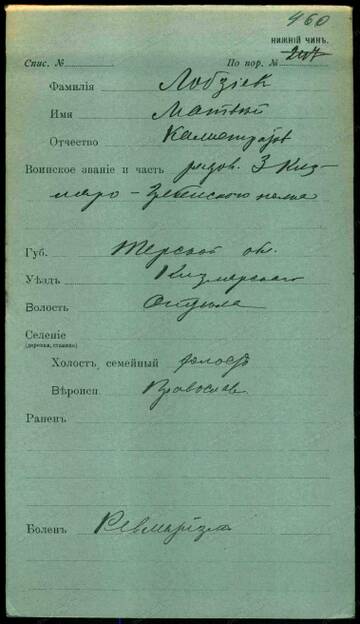 460
НИЖНІЙ ЧИНЪ.
Спис. № По пор. № 207
Фамилія
Имя Матвѣй
Отчество
Воинское званіе и часть рядов. 3 Киз-
ляро-Гребенского полка
Губ. Терской об.
Уѣздъ Кизлярскаго
Волость Отдѣла
Селеніе
(деревня, станица)
Холостъ, семейный холостъ
Вѣроисп. Православ.
Раненъ
Боленъ Ревматизм